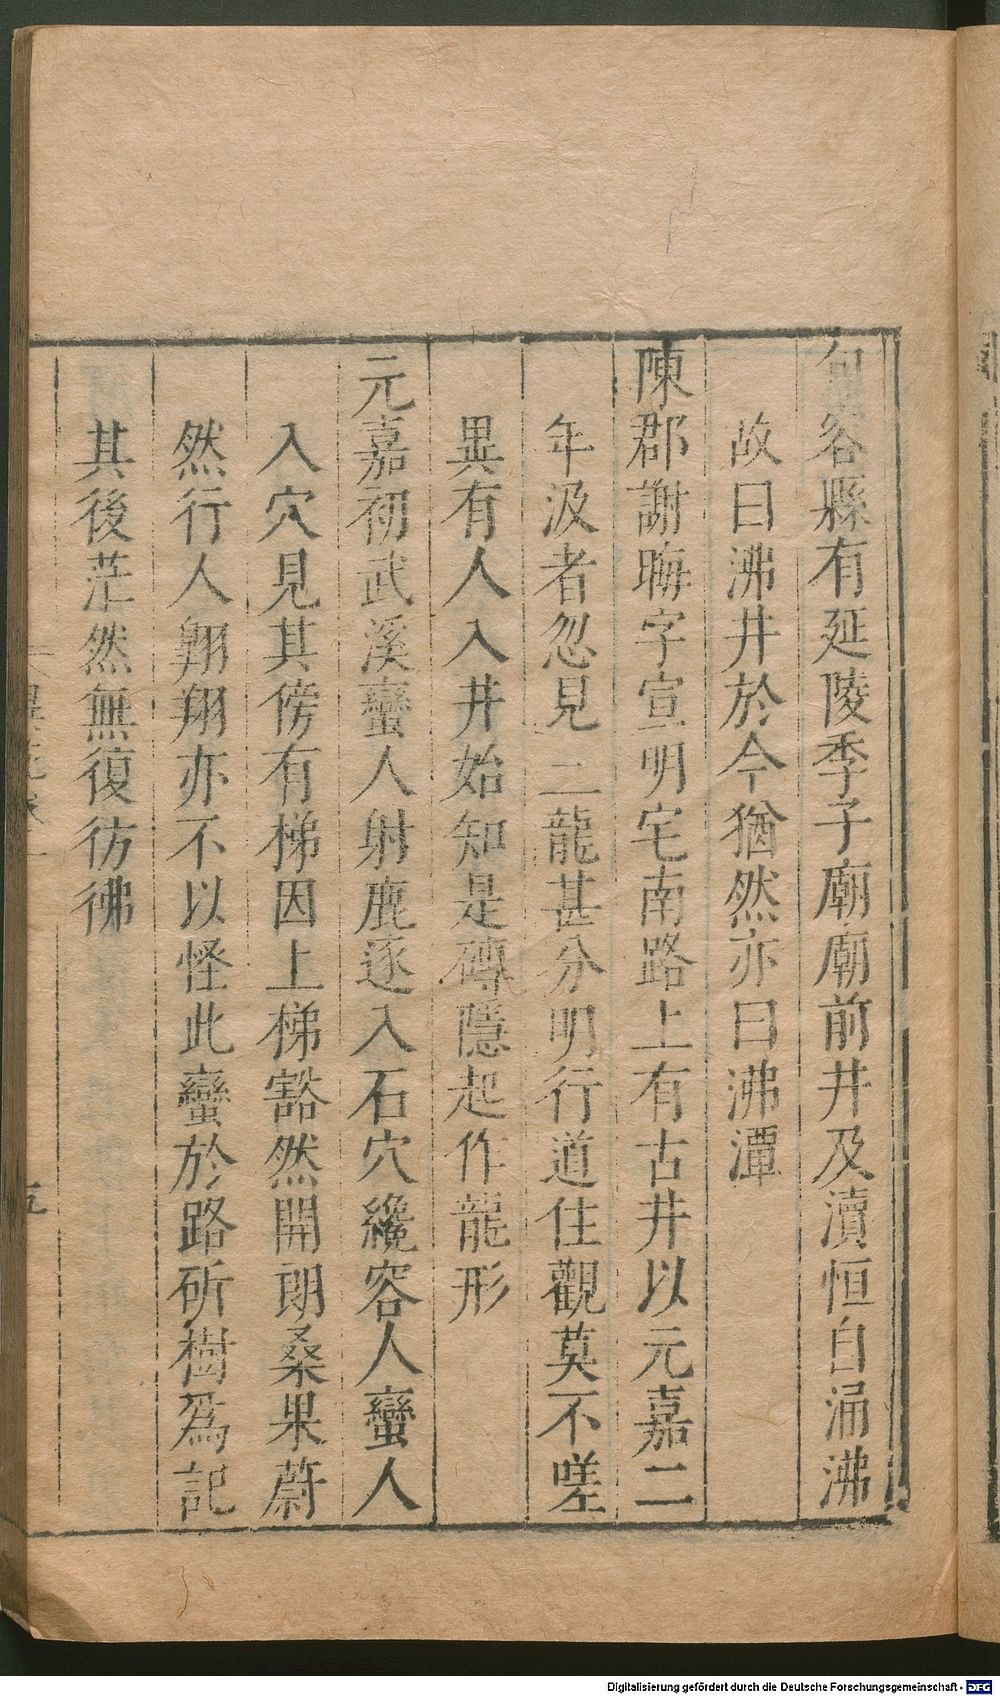 句容縣有延陵季子廟廟前井及瀆恒自涌沸
故曰沸井於今猶然亦曰沸潭
陳郡謝晦字宣明宅南路上有古井以元嘉二
年汲者忽見二龍甚分明行道住觀莫不嗟
異有人入井始知是磚隱起作龍形
元嘉初武溪蠻人射鹿逐入石穴纔容人蠻人
入穴見其傍有梯因上梯豁然開朗桑果蔚
然行人翱翔亦不以怪此蠻於路斫樹爲記
其後茫然無復彷彿
五
Digitalisierung gefördert durch die Deutsche Forschungsgemeinschaft - DFG